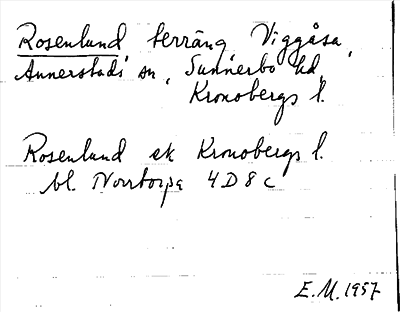 Rosenlund terräng Viggåsa,
Annerstads sn, Sunnerbo hd,
Kronobergs l.
Rosenlund ek Kronobergs l.
bl. Norrtorpa 4D8c
E.M. 1957